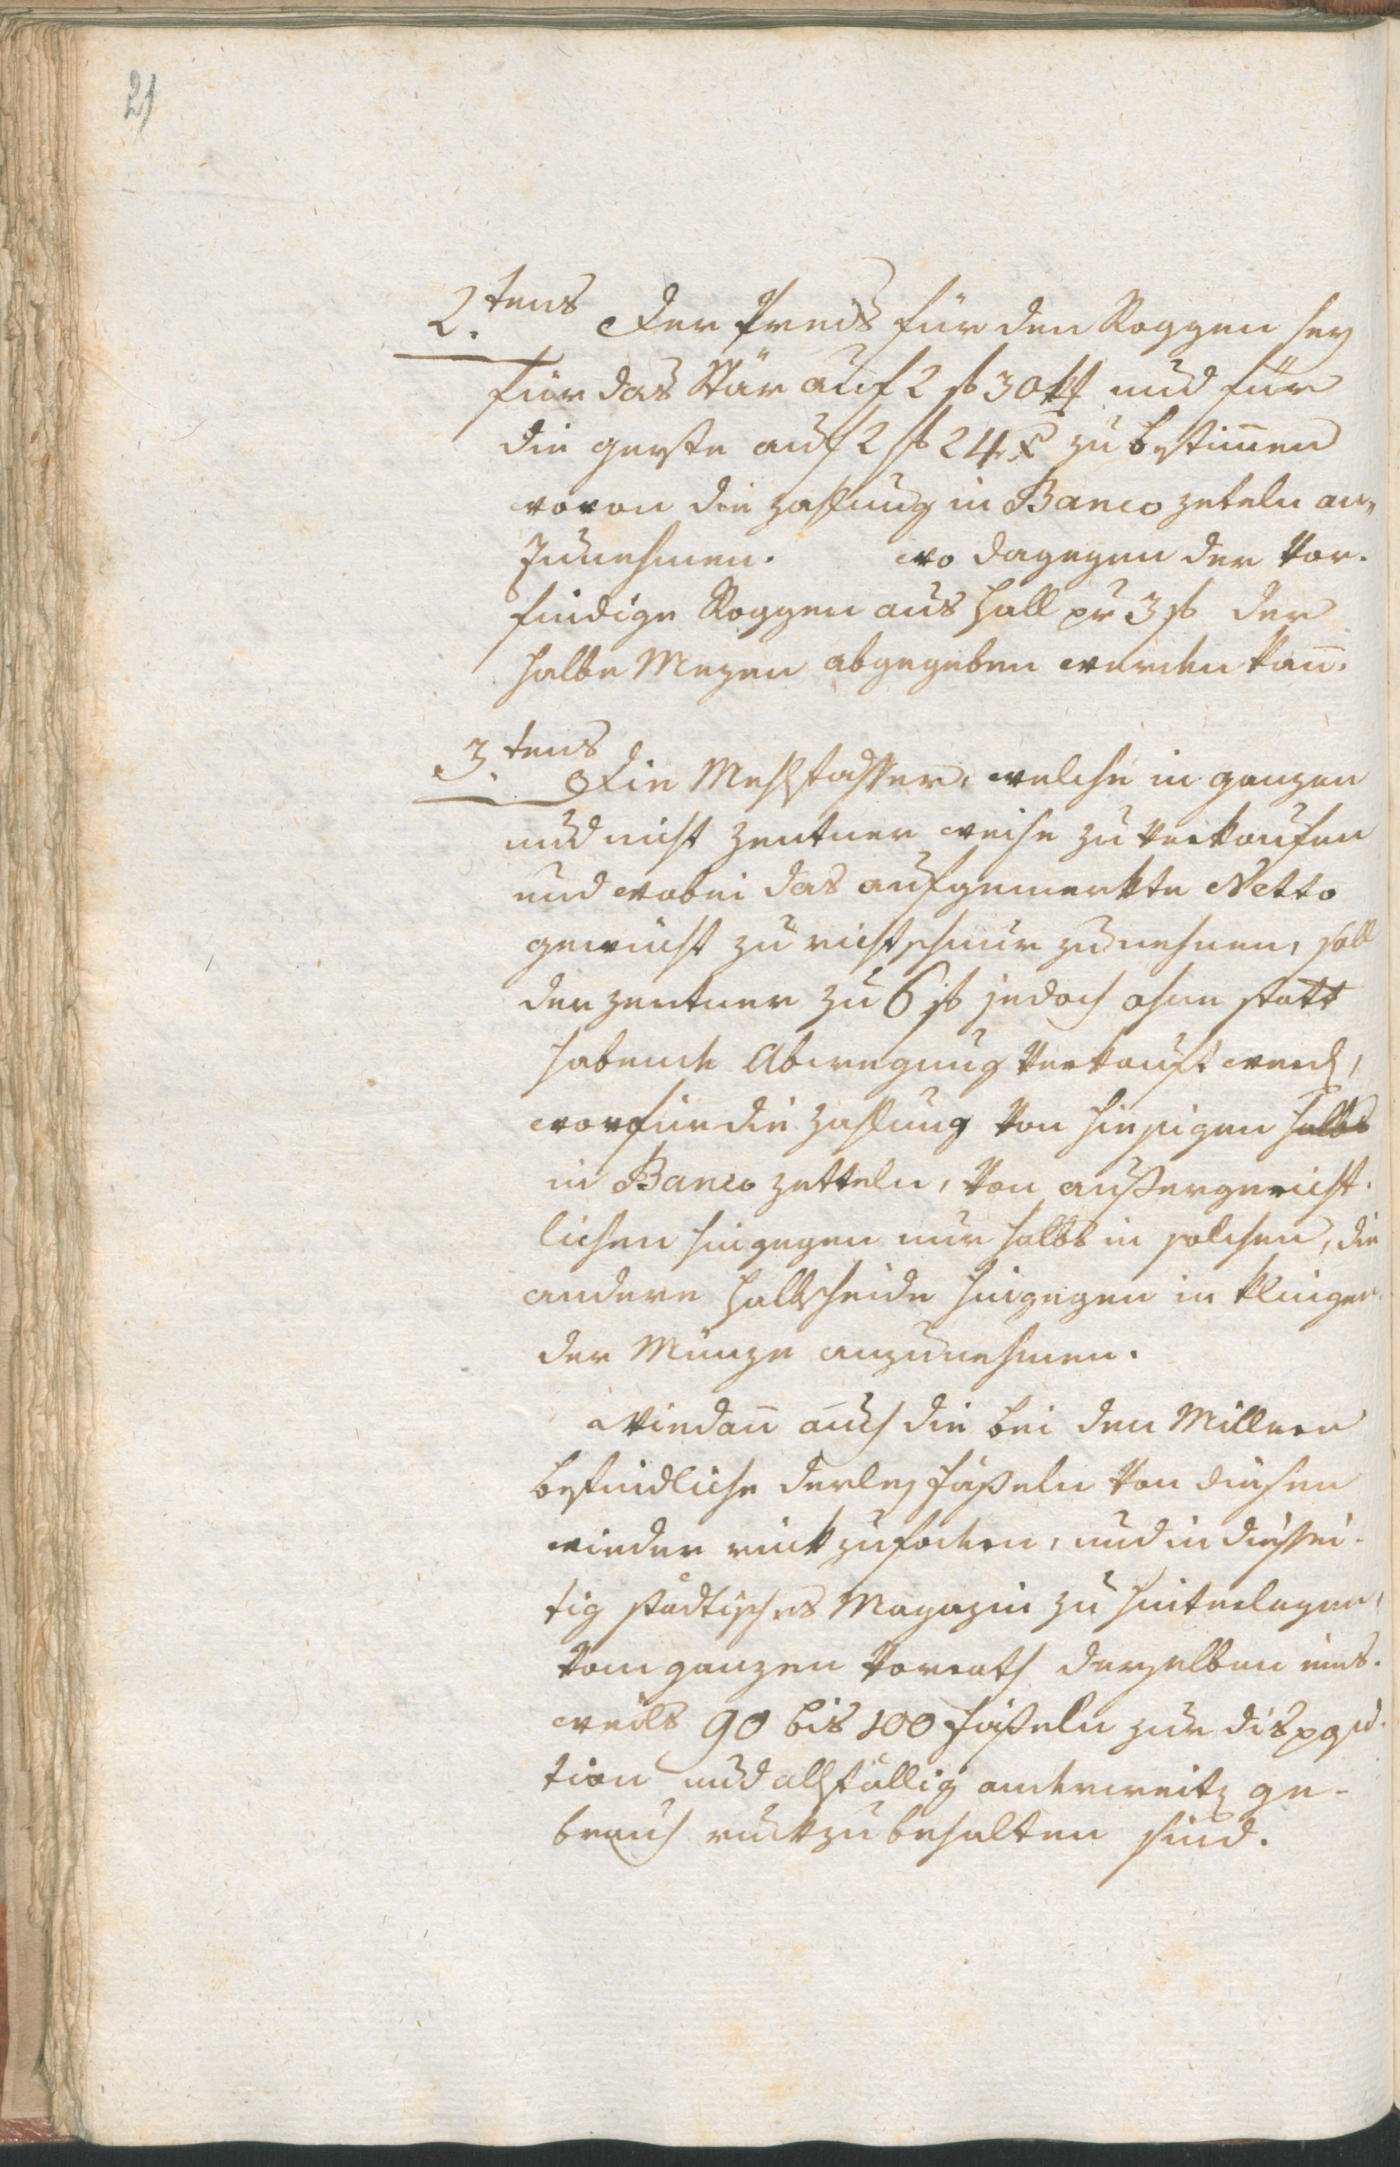 21
2.tens Der Preis für den Roggen sey
für das Stär auf 2 f 30 kr und für
die gerste auf 2 f 24 x zu bestim̅en
wovon die zahlung in Banco zeteln an„
zunehmen. wo dagegen der Vor-
findige Roggen aus Hall pr 3 f der
halbe Mezen abgegeben werden kan̅.
3.tens Die Mehlfässer, welche in ganzen
und nicht Zentner weise zu verkaufen
und wobei das aufgemerkte Netto
gewicht zu richtschnur zu nehmen, soll
der zentner zu 6 f jedoch ohne statt
habende Abwegung verkauft werd,
worfür die zahlung von hiesigen halbs
in Banco zetteln, von aussergericht-
lichen hingegen nur halbs in solchen, die
andere halbscheide hingegen in klingen-
der Münze anzunehmen.
Wiedan̅ auch die bei den Millern
befindliche derley fäßeln von diesen
wieder rückzufodern, und in diessei-
tig städtisches Magazin zu hinterlegen,
vom ganzen Vorrath derselben eins-
weils 90 bis 100 fäßeln zur disposi-
tion und allfällig anderweitig ge-
brauch rückzubehalten sind.